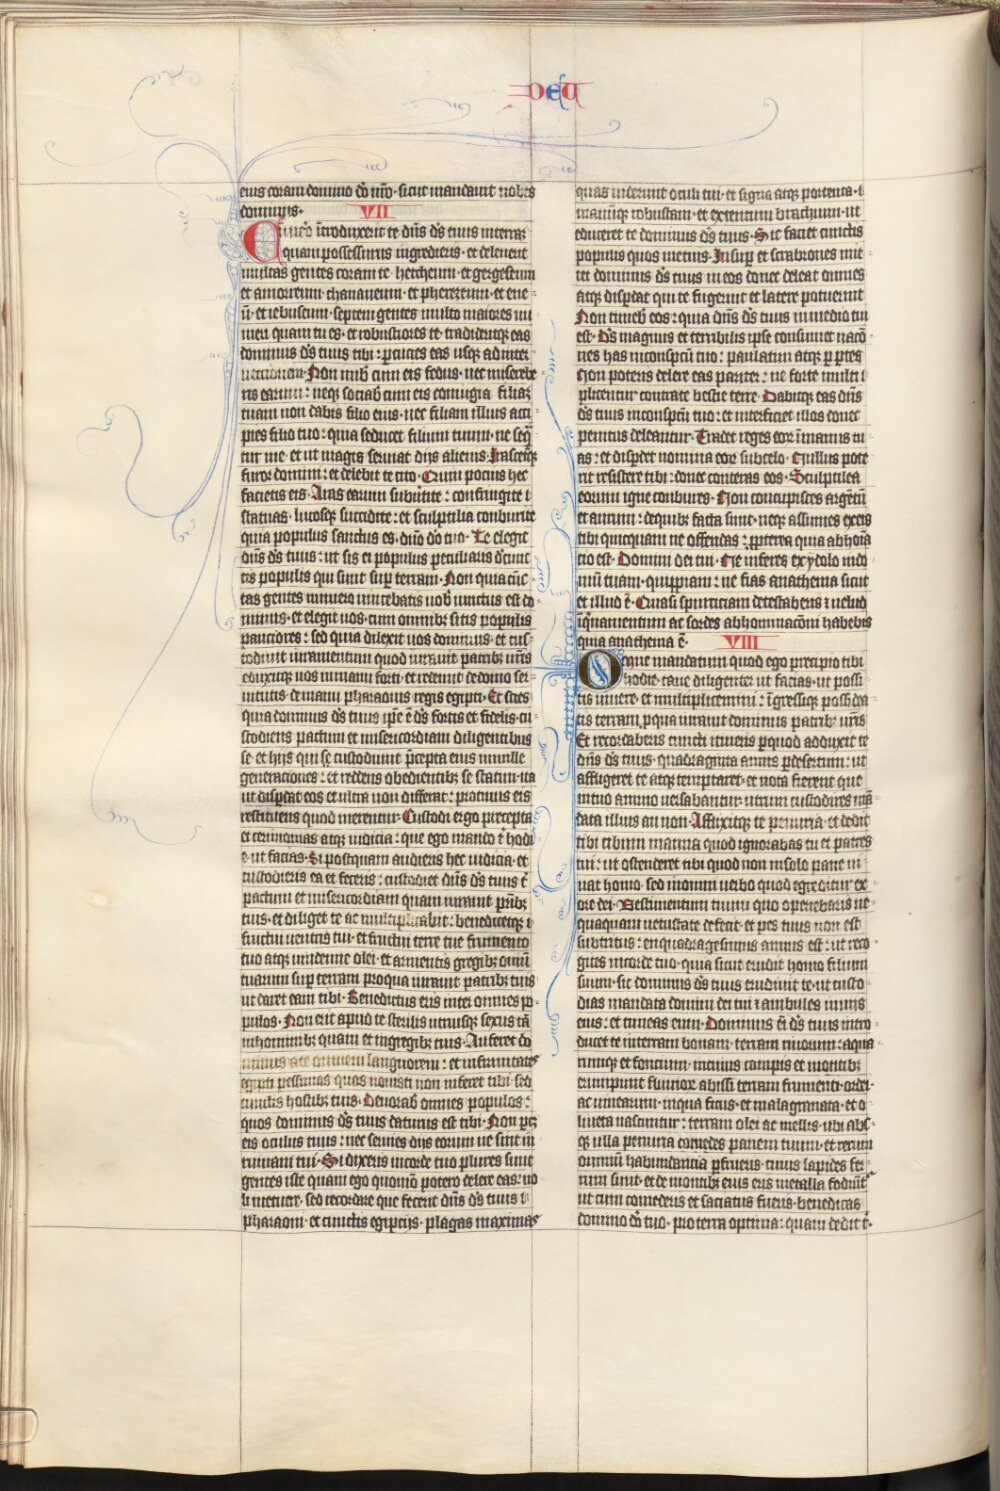 DEU
eius coram domino dō nr̄o · sicut mandauit nobis
dominus · VII
Cūmq̄ ītroduxerit te dn̄s ds̄ tuus in terrā
quam possessurus ingrederis · et deleuerit
multas gentes coram te · hetheum · et gergeseum
et amorreum · chananeum · et pherezeum · et eue
ū · et iebuseum · septem gentes multo maiores nu
meri quam tu es · et robustiores te · tradideritq; eas
dominus ds̄ tuus tibi : percuties eas usq; ad inter
necionem · Non inib' cum eis fedus · nec misereb̄e
ris earum : neq; sociab' cum eis coniugia · filiam
tuam non dabis filio eius · nec filiam illius acci
pies filio tuo : quia seducet filium tuum · ne seq̄
tur me · et ut magis seruiat dijs alienis · Irasceturq;
furor domini : et delebit te cito · Quin pocius hec
facietis eis · Aras earum subuertite : confringite ī
statuas · lucosq; succidite : et sculptilia comburite
quia populus sanctus es · dn̄o dō tuo · Te elegit
dn̄s ds̄ tuus : ut sis ei populus peculiaris d̄ cunc
tis populis qui sunt sup̄ terram · Non quia cūc
tas gentes numero uincebatis uob' iunctus est do
minus · et elegit uos · cum omnib; sitis populis
pauciores : sed quia dilexit uos dominus · et cus
todiuit iuramentum quod iurauit patrib; ur̄is
eduxitq; uos in manu forti · et redemit de domo ser
uitutis · de manu pharaonis regis egipti · Et scies
quia dominus ds̄ tuus ip̄e ē ds̄ fortis et fidelis · cu
stodiens pactum et misericordiam diligentibus
se · et hijs qui se custodiunt p̄cepta eius in mille
generaciones : et reddens odientib; se statim · ita
ut disp̄dat eos et ultra non differat : protinus eis
restituens quod merentur · Custodi ergo precepta
et cerimonias atq; iudicia : que ego mando t̄ hodi
e · ut facias · Si postquam audieris hec iudicia · et
custodieris ea et feceris : custodiet dn̄s ds̄ tuus t̄
pactum et misericordiam quam iurauit p̄rib;
tuis · et diliget te ac multiplicabit : benedicetq; ī
fructui uentris tui · et fructui terre tue frumento
tuo atq; uindemie olei · et armentis gregib; ouiū
tuarum sup̄ terram pro qua iurauit patrib; tuis
ut daret eam tibi · Benedictus eris inter omnes po
pulos · Non erit apud te sterilis utriusq; sexus tā
in hominib; quam et in gregib; tuis · Auferet do
minus a te omnem languorem : et infirmitates
egipti pessimas quas nouisti non inferet tibi sed
cunctis hostib; tuis · Deuorab' omnes populos :
quos dominus ds̄ tuus daturus est tibi · Non pc̄z
eis oculus tuus : nec seruies dijs eorum ne sint in
ruinam tui · Si dixeris in corde tuo plures sunt
gentes iste quam ego quomō potero delere eas : no
li metuere · sed recordare que fecerit dn̄s ds̄ tuus
pharaoni · et cunctis egiptijs · plagas maximas
quas uiderunt oculi tui · et signa atq; portenta · ī
manūq; robustam · et extentum brachium · ut
educeret te dominus ds̄ tuus · Sic faciet cunctis
populis quos metuis · Insup̄ et scrabrones mit
tet dominus ds̄ tuus in eos donec deleat omnes
atq; disp̄dat qui te fugerint et latere potuerint
Non timeb' eos : quia dn̄s ds̄ tuus in medio tui
est · Ds̄ magnus et terribilis ip̄se consumet nacō
nes has in conspc̄u tuo : paulatim atq; p̄ p̄tes
Non poteris delere eas pariter : ne forte multi
plicentur contra te bestie terre · Dabitq; eas dn̄s
ds̄ tuus in conspc̄u tuo : et interficiet illos donec
penitus deleantur · Tradet reges eor̄ ī manus tu
as : et disp̄det nomina eor̄ sub celo · Nullus pote
rit resistere tibi : donec conteras eos · Sculptilia
eorum igne conbures · Non concupisces argētū
et aurum : de quib; facta sunt · neq; assumes ex eis
tibi quicquam ne offendas : p̄pterea quia abhoīa
cio est · Domini dei tui · Ne inferes ex ydolo in do
mū tuam · quippiam : ne fias anathema sicut
et illud ē · Quasi spurciciam detestaberis ⁊ uelud
īq̄namentum ac sordes abhominacōni habebis
quia anathema ē · VIII
Omne mandatum quod ego precipio tibi
hodie · caue diligenter ut facias · ut possi
tis uiuere · et multiplicemini : īgressiq; possidea
tis terram p̄ qua iurauit dominus patrib; ur̄is
Et recordaberis cuncti itineris p̄ quod adduxit te
dn̄s ds̄ tuus · quadraginta annis p̄ desertum : ut
affligeret te atq; temptaret · et nota fierent que
in tuo animo uersabantur · utrum custodires mā
data illius an non · Afflixitq; te penuria · et dedit
tibi cibum manna quod ignorabas tu et patres
tui : ut ostenderet tibi quod non in solo pane ui
uat homo · sed in omni uerbo quod egreditur ex
ore dei · Vestimentum tuum quo operiebaris ne
quaquam uetustate defecit · et pes tuus non est
subtritus : en quadragesimus annus est : ut reco
gites in corde tuo · quia sicut erudit homo filium
suum · sic dominus ds̄ tuus erudiuit te · ut custo
dias mandata domini dei tui ⁊ ambules in uijs
eius : et timeas eum · Dominus ei ds̄ tuus intro
ducet te in terram bonam · terram riuorum : aqua
rumq; et foncium · in cuius campis et montib;
erumpunt fluuior̄ abissi · terram frumenti · ordei ·
ac uinearum · in qua ficus · et mala granata · et o
liueta nascuntur : terram olei ac mellis · ubi abs
q; ulla penuria comedes panem tuum · et rerum
omniū habundancia p̄frueris · cuius lapides fer
rum sunt · et de montib; eius eris metalla fodiūt
ut cum comederis et saciatus fueris · benedicas
domino dō tuo · pro terra optima : quam dedit t̄ ·